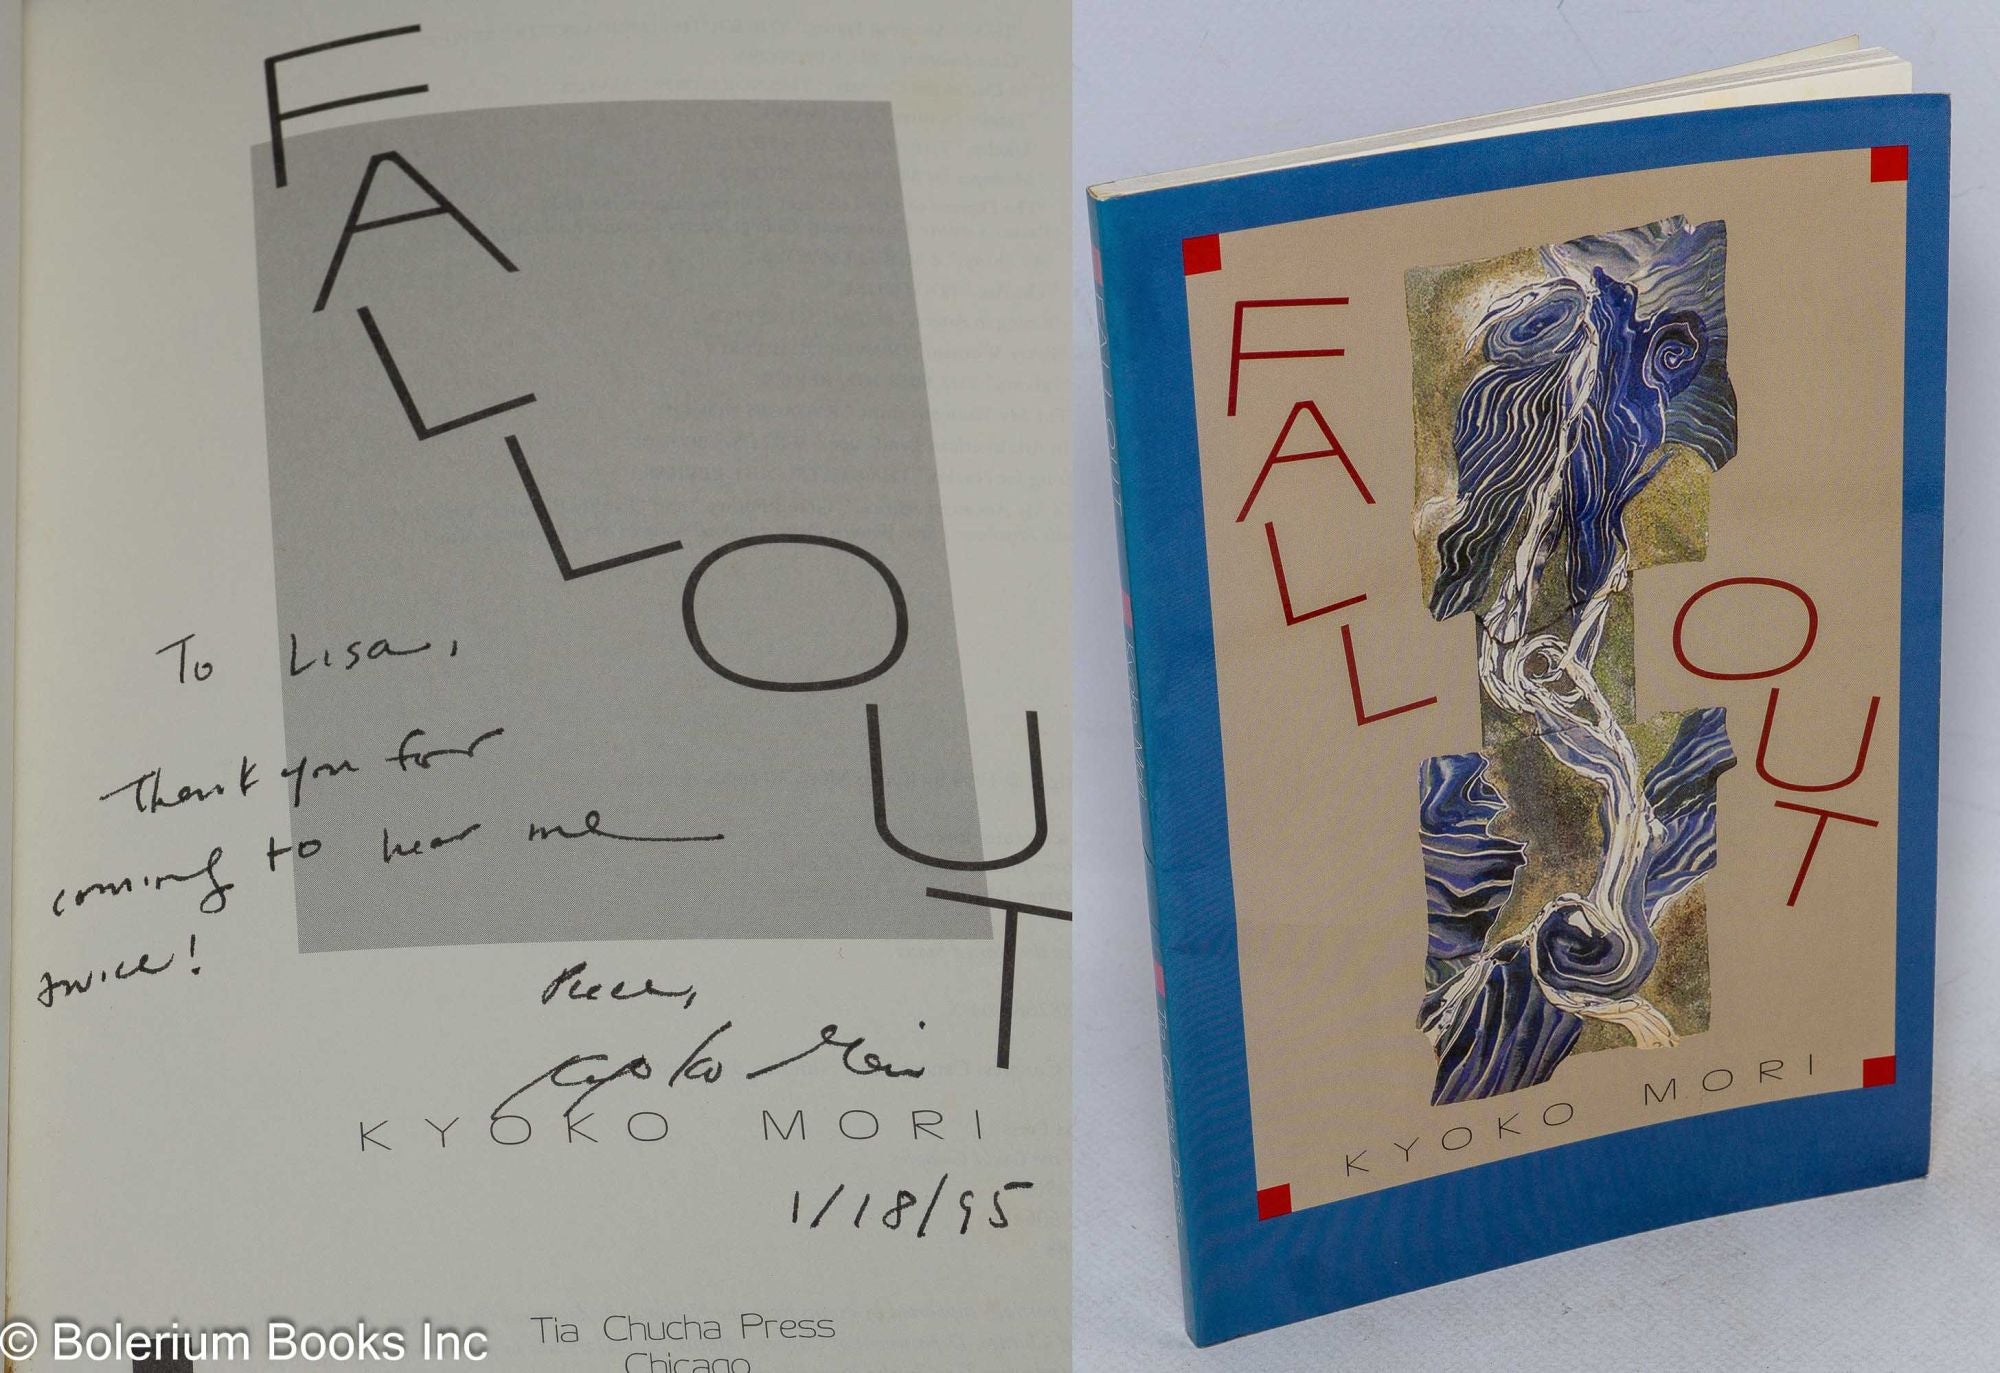 FALLOUT
To Lisa,
Thank you for
coming to hear me
twice!
Peace,
Kyoko Mori
KYOKO MORI
1/18/95
Tia Chucha Press
Chicago
© Bolerium Books Inc
FALL OUT
Kyoko Mori
Tia Chucha Press
FALL
OUT
KYOKO MORI